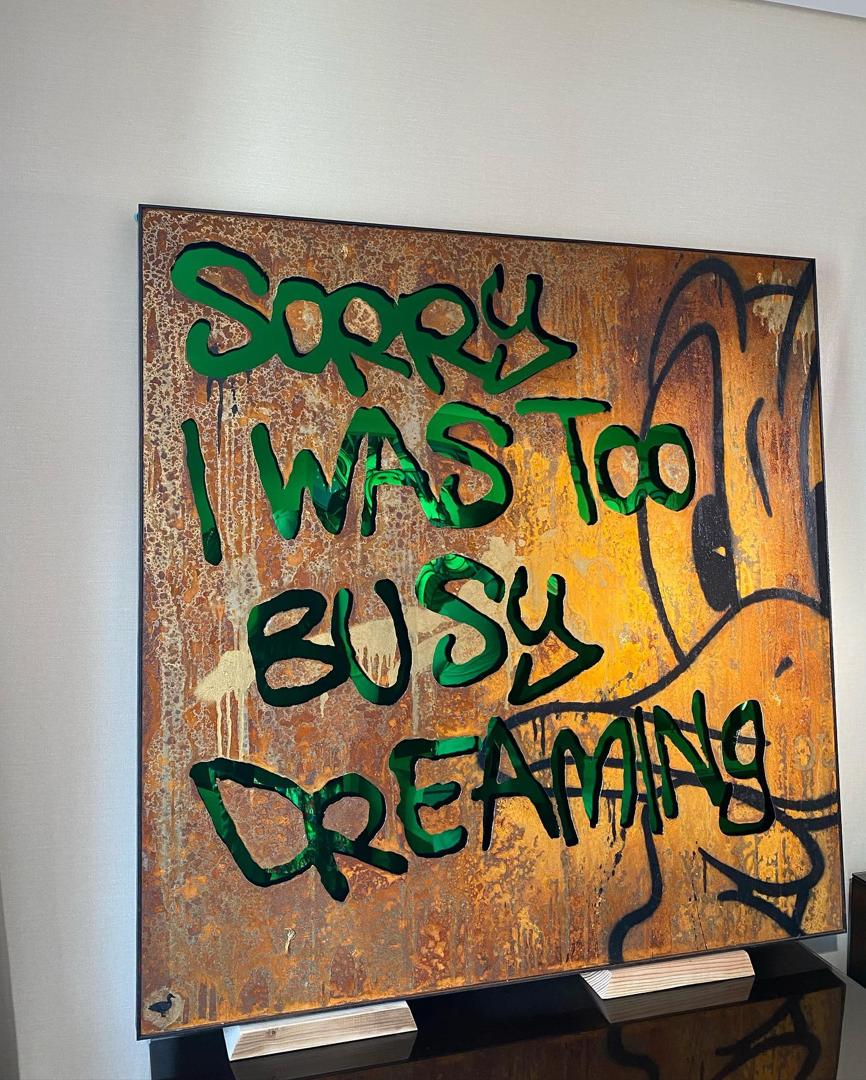 SORRY
I WAS TOO
BUSY
DREAMING